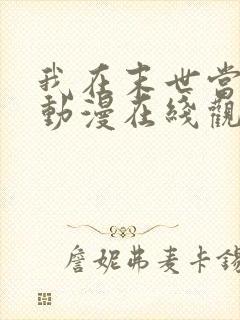 我在末世当
動漫在綫觀
詹妮弗麦卡錫